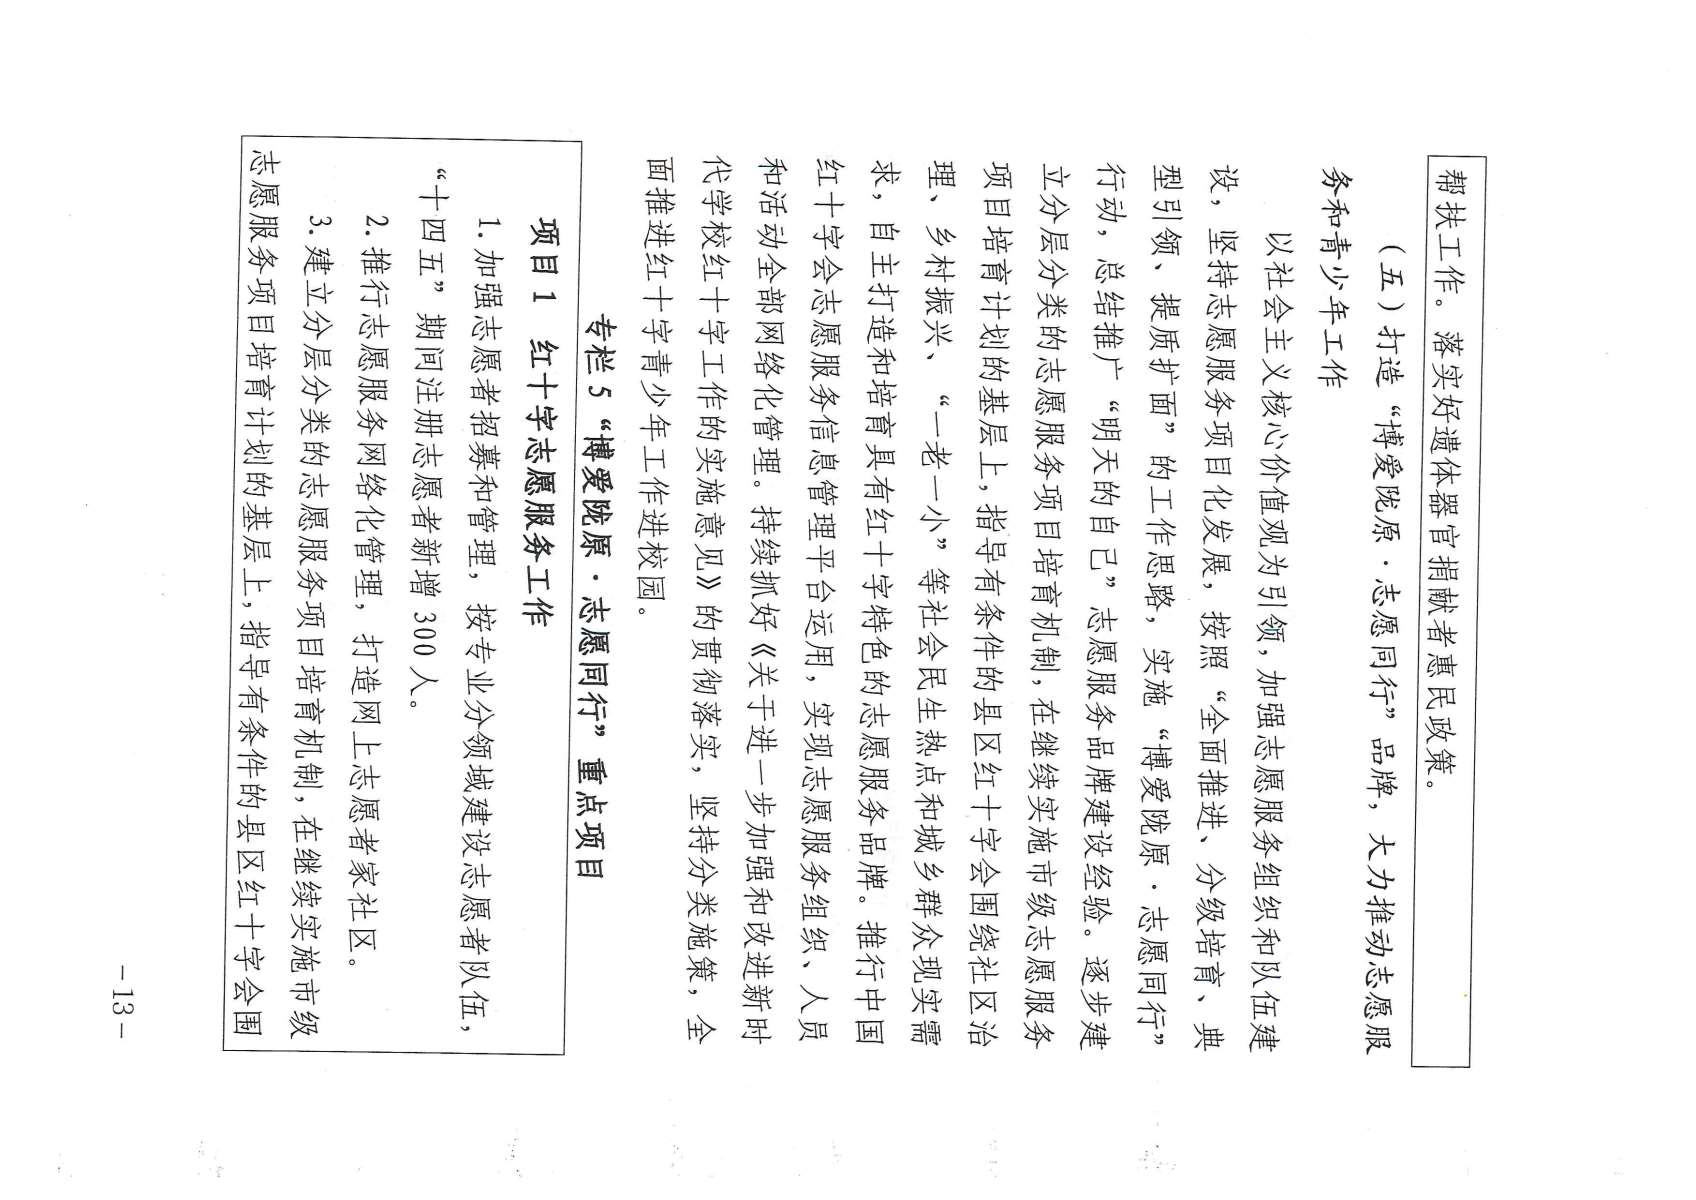 帮扶工作。落实好遗体器官捐献者惠民政策。
（五）打造“博爱陇原·志愿同行”品牌，大力推动志愿服
务和青少年工作
以社会主义核心价值观为引领，加强志愿服务组织和队伍建
设，坚持志愿服务项目化发展，按照“全面推进、分级培育、典
型引领、提质扩面”的工作思路，实施“博爱陇原·志愿同行”
行动，总结推广“明天的自己”志愿服务品牌建设经验。逐步建
立分层分类的志愿服务项目培育机制，在继续实施市级志愿服务
项目培育计划的基层上，指导有条件的县区红十字会围绕社区治
理、乡村振兴、“一老一小”等社会民生热点和城乡群众现实需
求，自主打造和培育具有红十字特色的志愿服务品牌。推行中国
红十字会志愿服务信息管理平台运用，实现志愿服务组织、人员
和活动全部网络化管理。持续抓好《关于进一步加强和改进新时
代学校红十字工作的实施意见》的贯彻落实，坚持分类施策，全
面推进红十字青少年工作进校园。
专栏5“博爱陇原·志愿同行”重点项目
项目1 红十字志愿服务工作
1.加强志愿者招募和管理，按专业分领域建设志愿者队伍，
“十四五”期间注册志愿者新增300人。
2.推行志愿服务网络化管理，打造网上志愿者家社区。
3.建立分层分类的志愿服务项目培育机制，在继续实施市级
志愿服务项目培育计划的基层上，指导有条件的县区红十字会围
－13－